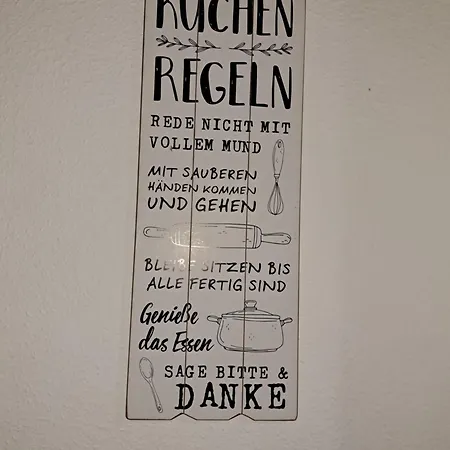 KÜCHEN
REGELN
REDE NICHT MIT
VOLLEM MUND
MIT SAUBEREN
HÄNDEN KOMMEN
UND GEHEN
BLEIBE SITZEN BIS
ALLE FERTIG SIND
Genieße
das Essen
SAGE BITTE &
DANKE